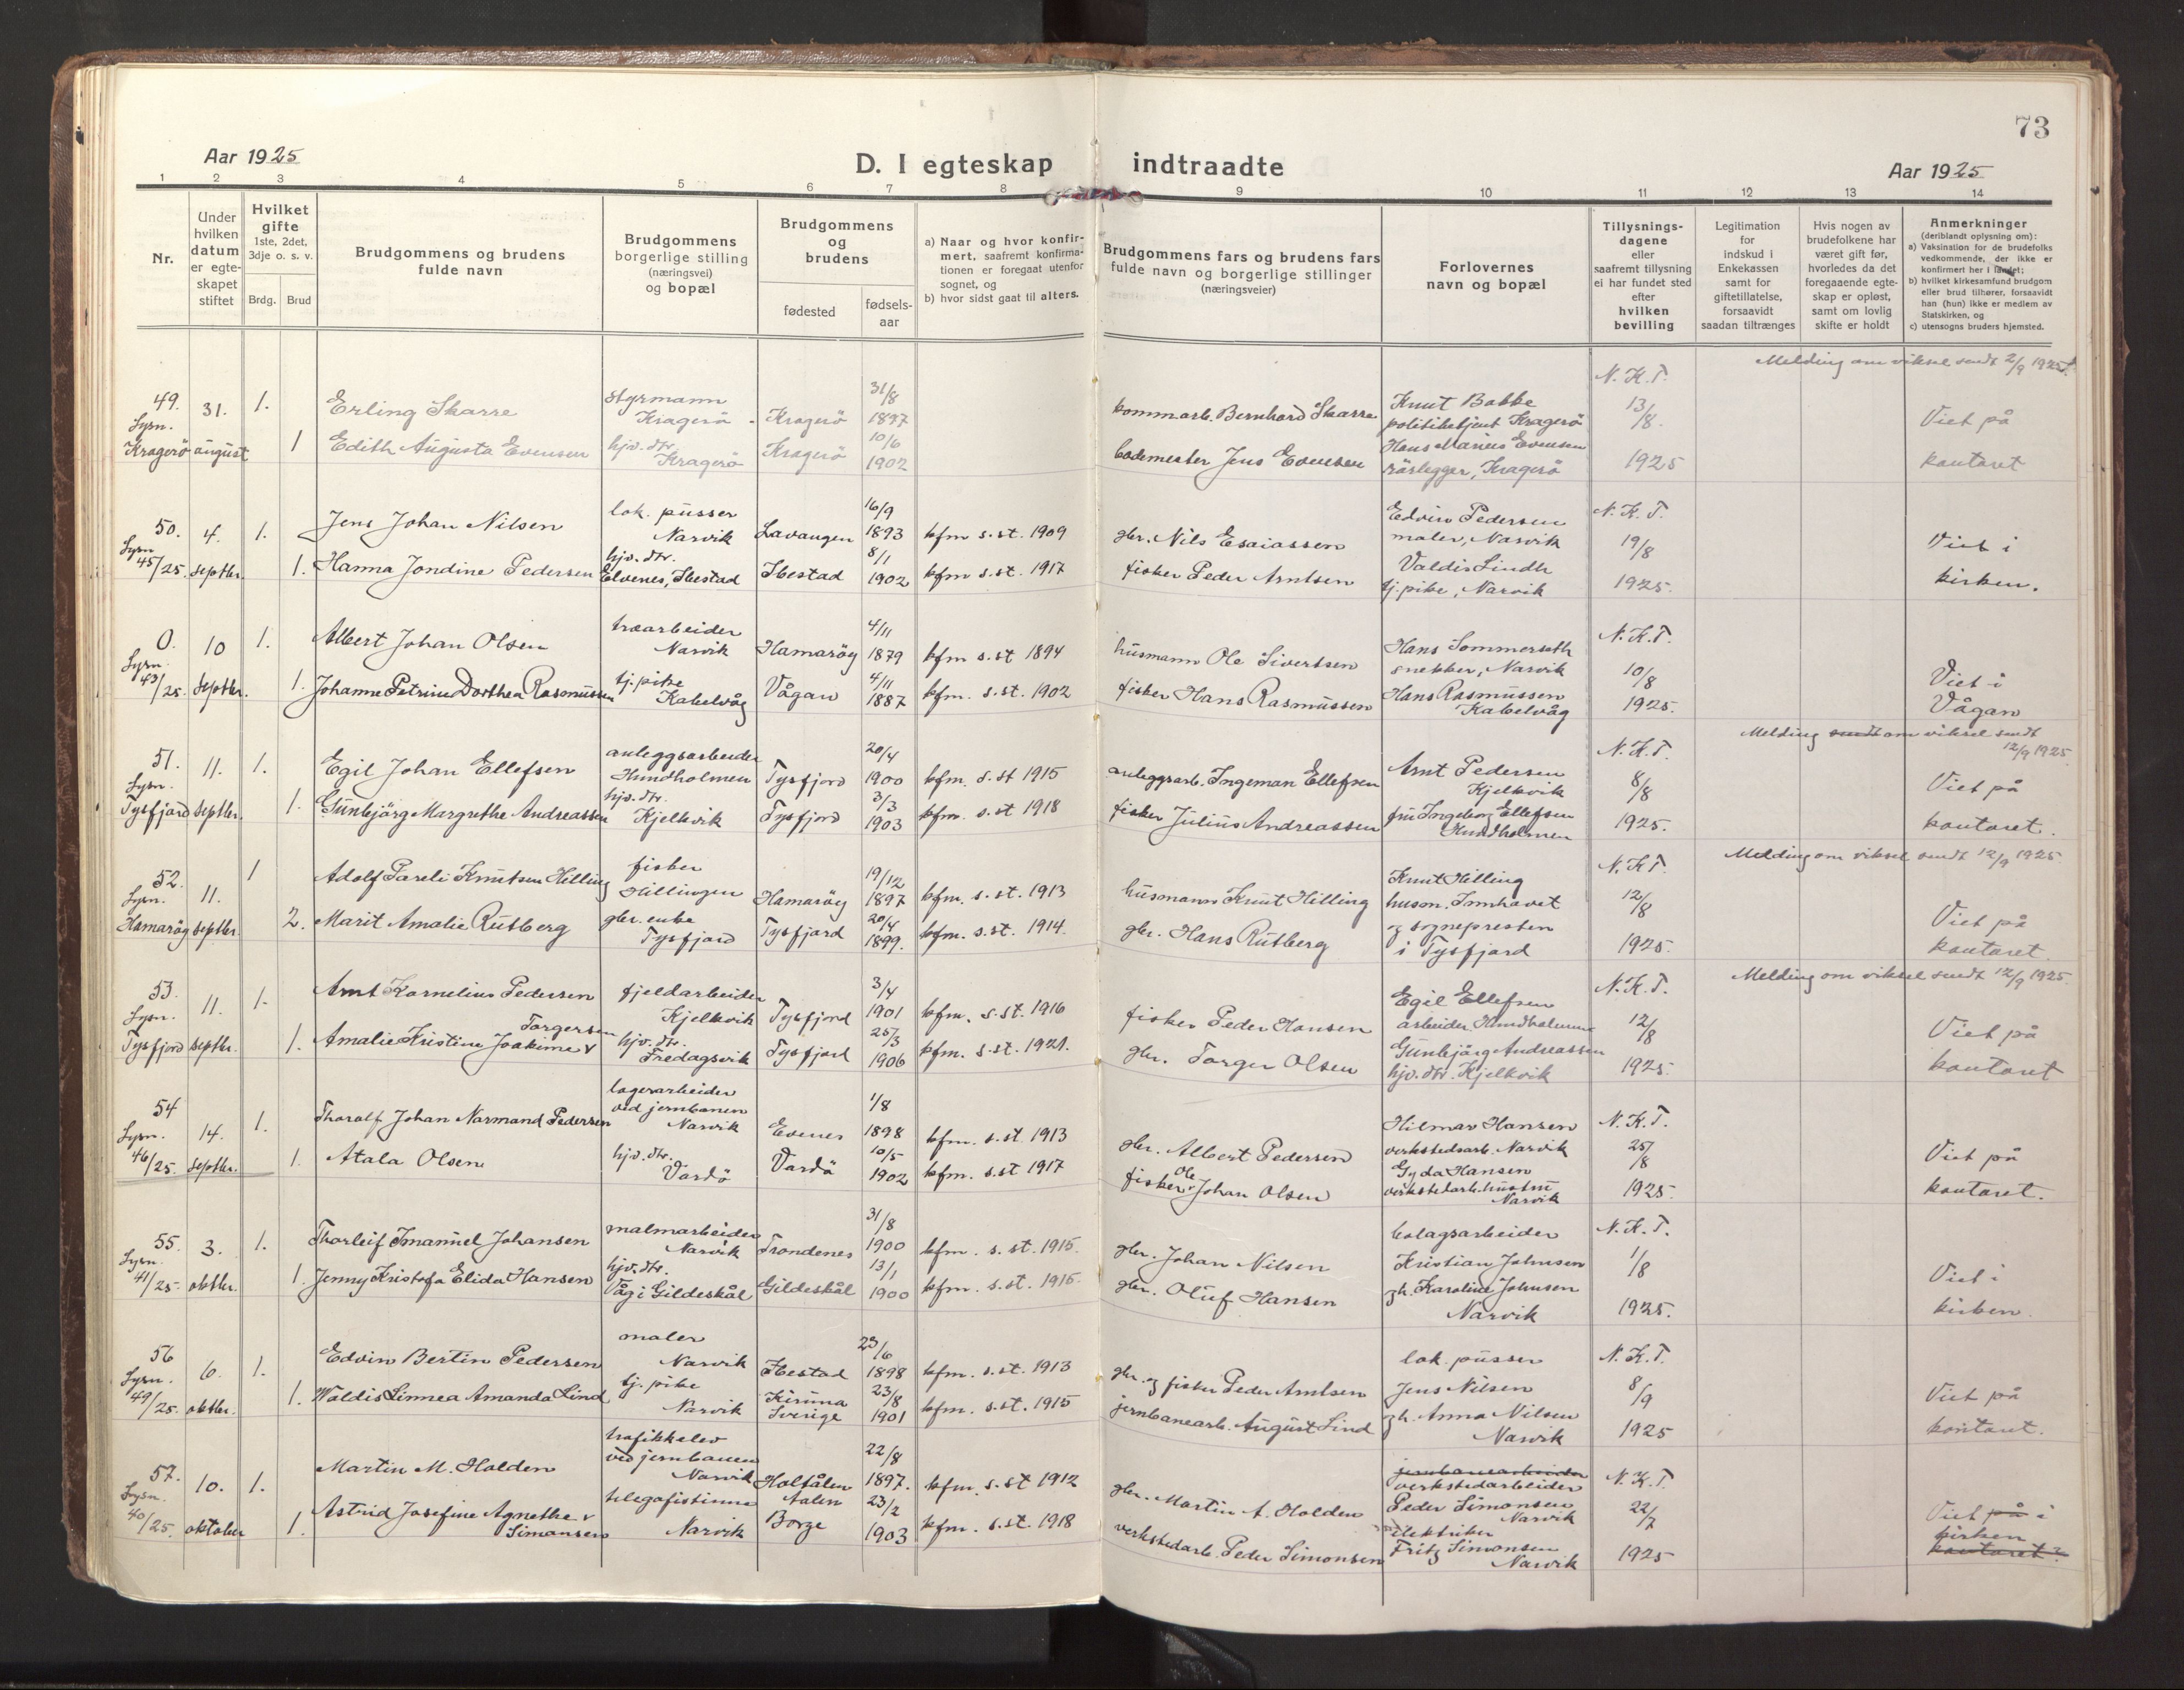 73
Aar 1925
D. I egteskap indtraadte
Aar 1925
1 2 3 4 5 6 7 8 9 10 11 12 13 14
Nr.
Under hvilken datum er egteskapet stiftet
Hvilket gifte 1ste, 2det, 3dje o. s. v.
Brdg. Brud
Brudgommens og brudens fulde navn
Brudgommens borgerlige stilling (næringsvei) og bopæl
Brudgommens og brudens
fødested
fødselsaar
a) Naar og hvor konfirmert, saafremt konfirmationen er foregaat utenfor sognet, og
b) hvor sidst gaat til alters.
Brudgommens fars og brudens fars fulde navn og borgerlige stillinger (næringsveier)
Forlovernes navn og bopæl
Tillysningsdagene eller saafremt tillysning ei har fundet sted efter hvilken bevilling
Legitimation for indskud i Enkekassen samt for giftetillatelse, forsaavidt saadan tiltrænges
Hvis nogen av brudefolkene har været gift før, hvorledes da det foregaaende egteskap er opløst, samt om lovlig skifte er holdt
Anmerkninger (deriblandt oplysning om):
a) Vaksination for de brudefolks vedkommende, der ikke er konfirmert her i landet;
b) hvilket kirkesamfund brudgom eller brud tilhører, forsaavidt han (hun) ikke er medlem av Statskirken, og
c) utensogns bruders hjemsted.
Melding om viksel sendt 2/9 1925.
49. Lysn. Kragerö 31. august 1. Erling Skarre styrmann Kragerö Kragerö 31/8 1897 kommarb. Bernhard Skarre Knut Bakke politibetjent Kragerö N.K.T. 13/8. 1925 Viet på kontoret
1 Edith Augusta Evensen hjv. dtr. Kragerö Kragerö 10/6 1902 bademester Jens Evensen Hans Marius Evensen rörlegger, Kragerö
50. Lysn. 45/25. 4. septbr. 1. Jens Johan Nilsen lok. pusser Narvik Lavangen 16/9 1893 kfm s.st. 1909 gbr. Nils Esaiassen Edvin Pedersen maler, Narvik N.K.T. 19/8 1925. Viet i kirken.
1. Hanna Jondine Pedersen hjv. dtr. Elvenes, Ibestad Ibestad 8/1 1902 kfm s.st. 1917 fisker Peder Arntsen Valdis Lindh tj. pike, Narvik
0. Lysn. 43/25. 10 septbr. 1. Albert Johan Olsen træarbeider Narvik Hamaröy 4/11 1879 kfm s.st 1894 husmann Ole Sivertsen Hans Sommerseth snekker, Narvik N.K.T. 10/8 1925. Viet i Vågan
1. Johanne Petrine Dorthea Rasmussen tj. pike Kabelvåg Vågan 4/11 1887 kfm. s.st. 1902 fisker Hans Rasmussen Hans Rasmussen Kabelvåg
Melding sendt om viksel sendt 12/9 1925.
51. Lysn. Tysfjord 11. septbr. 1. Egil Johan Ellefsen anleggsarbeider Hundholmen Tysfjord 20/4 1900 kfm. s.st 1915 anleggsarb. Ingeman Ellefsen Arnt Pedersen Kjelkvik N.K.T. 8/8 1925. Viet på kontoret.
1. Gunbjörg Margrethe Andreassen hjv. dtr. Kjelkvik Tysfjord 3/3 1903 kfm. s.st 1918 fisker Julius Andreassen fru Ingeborg Ellefsen Hundholmen
Melding om viksel sendt 12/9 1925.
52. Lysn. Hamaröy 11. septbr. 1 Adolf Pareli Knutsen Hilling fisker Hillingen Hamaröy 19/12 1897 kfm. s.st. 1913 husmann Knut Hilling Knut Hilling husm. Innhavet N.K.T. 12/8 1925. Viet på kontoret.
2. Marit Amalie Rutberg gbr. enke Tysfjord Tysfjord 20/4 1899. kfm. s.st. 1914. gbr. Hans Rutberg og sognepresten i Tysfjord
Melding om viksel sendt 12/9 1925
53. Lysn. Tysfjord 11. septbr. 1. Arnt Kornelius Pedersen fjeldarbeider Kjelkvik Tysfjord 3/4 1901 kfm. s.st 1916 fisker Peder Hansen Egil Ellefsen arbeider Hundholmen N.K.T. 12/8 1925. Viet på kontoret
1. Amalie Kristine Joakime Torgersen hjv. dtr. Fredagsvik Tysfjord 25/3 1906 kfm. s.st. 1921. gbr. Torger Olsen Gunbjörg Andreassen hjv. dtr. Kjelkvik
54 Lysn. 46/25. 14. septbr. 1. Thoralf Johan Normand Pedersen lagerarbeider ved jernbanen Narvik Evenes 1/8 1898 kfm. s.st. 1913 gbr. Albert Pedersen Hilmar Hansen verkstedsarb. Narvik N.K.T. 25/8 1925. Viet på kontoret.
1. Atala Olsen hjv. dtr. Vardö Vardö 10/5 1902 kfm. s.st 1917 fisker Ole Johan Olsen Gyda Hansen verkstedarb. hustru Narvik
55. Lysn. 41/25. 3. oktbr. 1. Thorleif Imanuel Johansen malmarbeider Narvik Trondenes 31/8 1900 kfm. s.st. 1915. gbr. Johan Nilsen bolagsarbeider Kristian Johnsen N.K.T. 1/8 1925. Viet i kirken.
1. Jenny Kristofa Elida Hansen hjv. dtr. Våg i Gildeskål Gildeskål 13/1 1900 kfm. s.st. 1915. gbr. Oluf Hansen gh. Karoline Johnsen Narvik
56 Lysn. 49/25. 6. oktbr. 1. Edvin Bertin Pedersen maler Narvik Ibestad 23/6 1898 kfm. s.st. 1913 gbr. og fisker Peder Arntsen lok. pusser Jens Nilsen N.K.T. 8/9 1925 Viet på kontoret.
1. Waldis Linnea Amanda Lind tj. pike Narvik Kiruna Sverige 23/8 1901 kfm. s.st. 1915 jernbanearb. August Lind gh. Anna Nilsen Narvik
57. Lysn. 40/25. 10. oktober 1. Martin M. Holden trafikkelev ved jernbanen Narvik Holtålen Aalen 22/8 1897. kfm. s.st 1912 gbr. Martin A. Holden jernbanearbeider verkstedarbeider Peder Simonsen Narvik N.K.T. 22/7 1925 Viet på i kirken kontoret.
1. Astrid Josefine Agnethe Simonsen telegrafistinne Narvik Borge 23/2 1903 kfm. s.st. 1918 verkstedarb. Peder Simonsen elektriker Fritz Simonsen Narvik